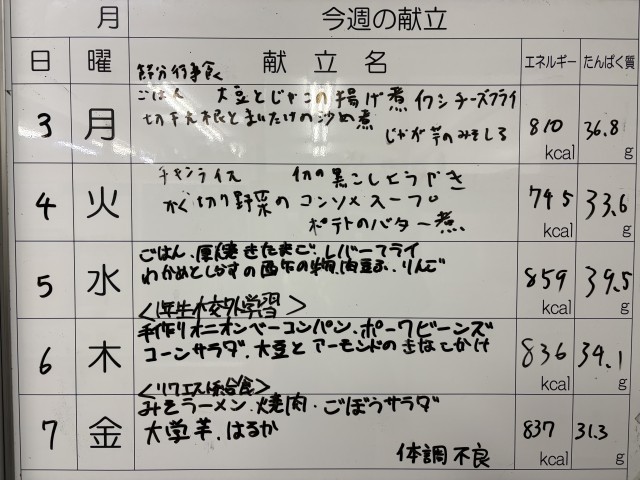 月 今週の献立
日 曜 献立名 エネルギー たんぱく質
節分行事食
3 月 ごはん 大豆とじゃこの揚げ煮 イワシチーズフライ 810 kcal 36.8 g
切干大根とまいたけの炒め煮
じゃが芋のみそしる
4 火 チキンライス イカの黒こしょうやき 745 kcal 33.6 g
かく切り野菜のコンソメスープ
ポテトのバター煮
5 水 ごはん.厚焼きたまご.レバーフライ 859 kcal 39.5 g
わかめとしらすの酢の物.肉豆ふ.りんご
<1年生校外学習>
6 木 手作りオニオンベーコンパン.ポークビーンズ 836 kcal 34.1 g
コーンサラダ.大豆とアーモンドのきなこかけ
<リクエスト給食>
7 金 みそラーメン.焼肉.ごぼうサラダ 837 kcal 31.3 g
大学芋.はるか
体調不良